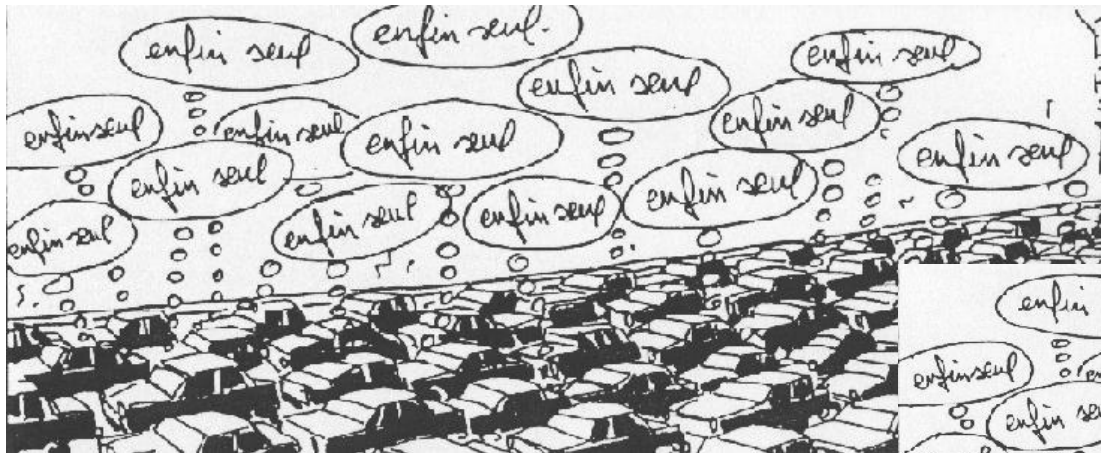 enfin seul
enfin seul.
enfin seul
enfin seul
enfin seul
enfin seul
enfin seul
enfin seul
enfin seul
enfin seul
enfin seul
enfin seul
enfin seul
enfin seul
enfin seul
enfin
enfin seul
en
enfin se